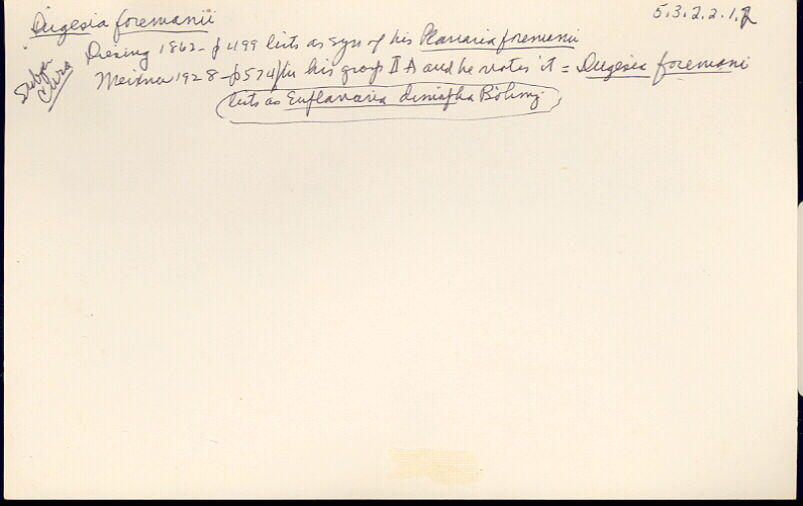 Dugesia foremanii
5.3.2.2.1.2
Diesing 1862 - p 499 lists as syn of his Planaria foremanii
Meixner 1928 - p 574 / in his group II A and he notes it = Dugesia foremani
lists as Euplanaria Böhmig
Cura